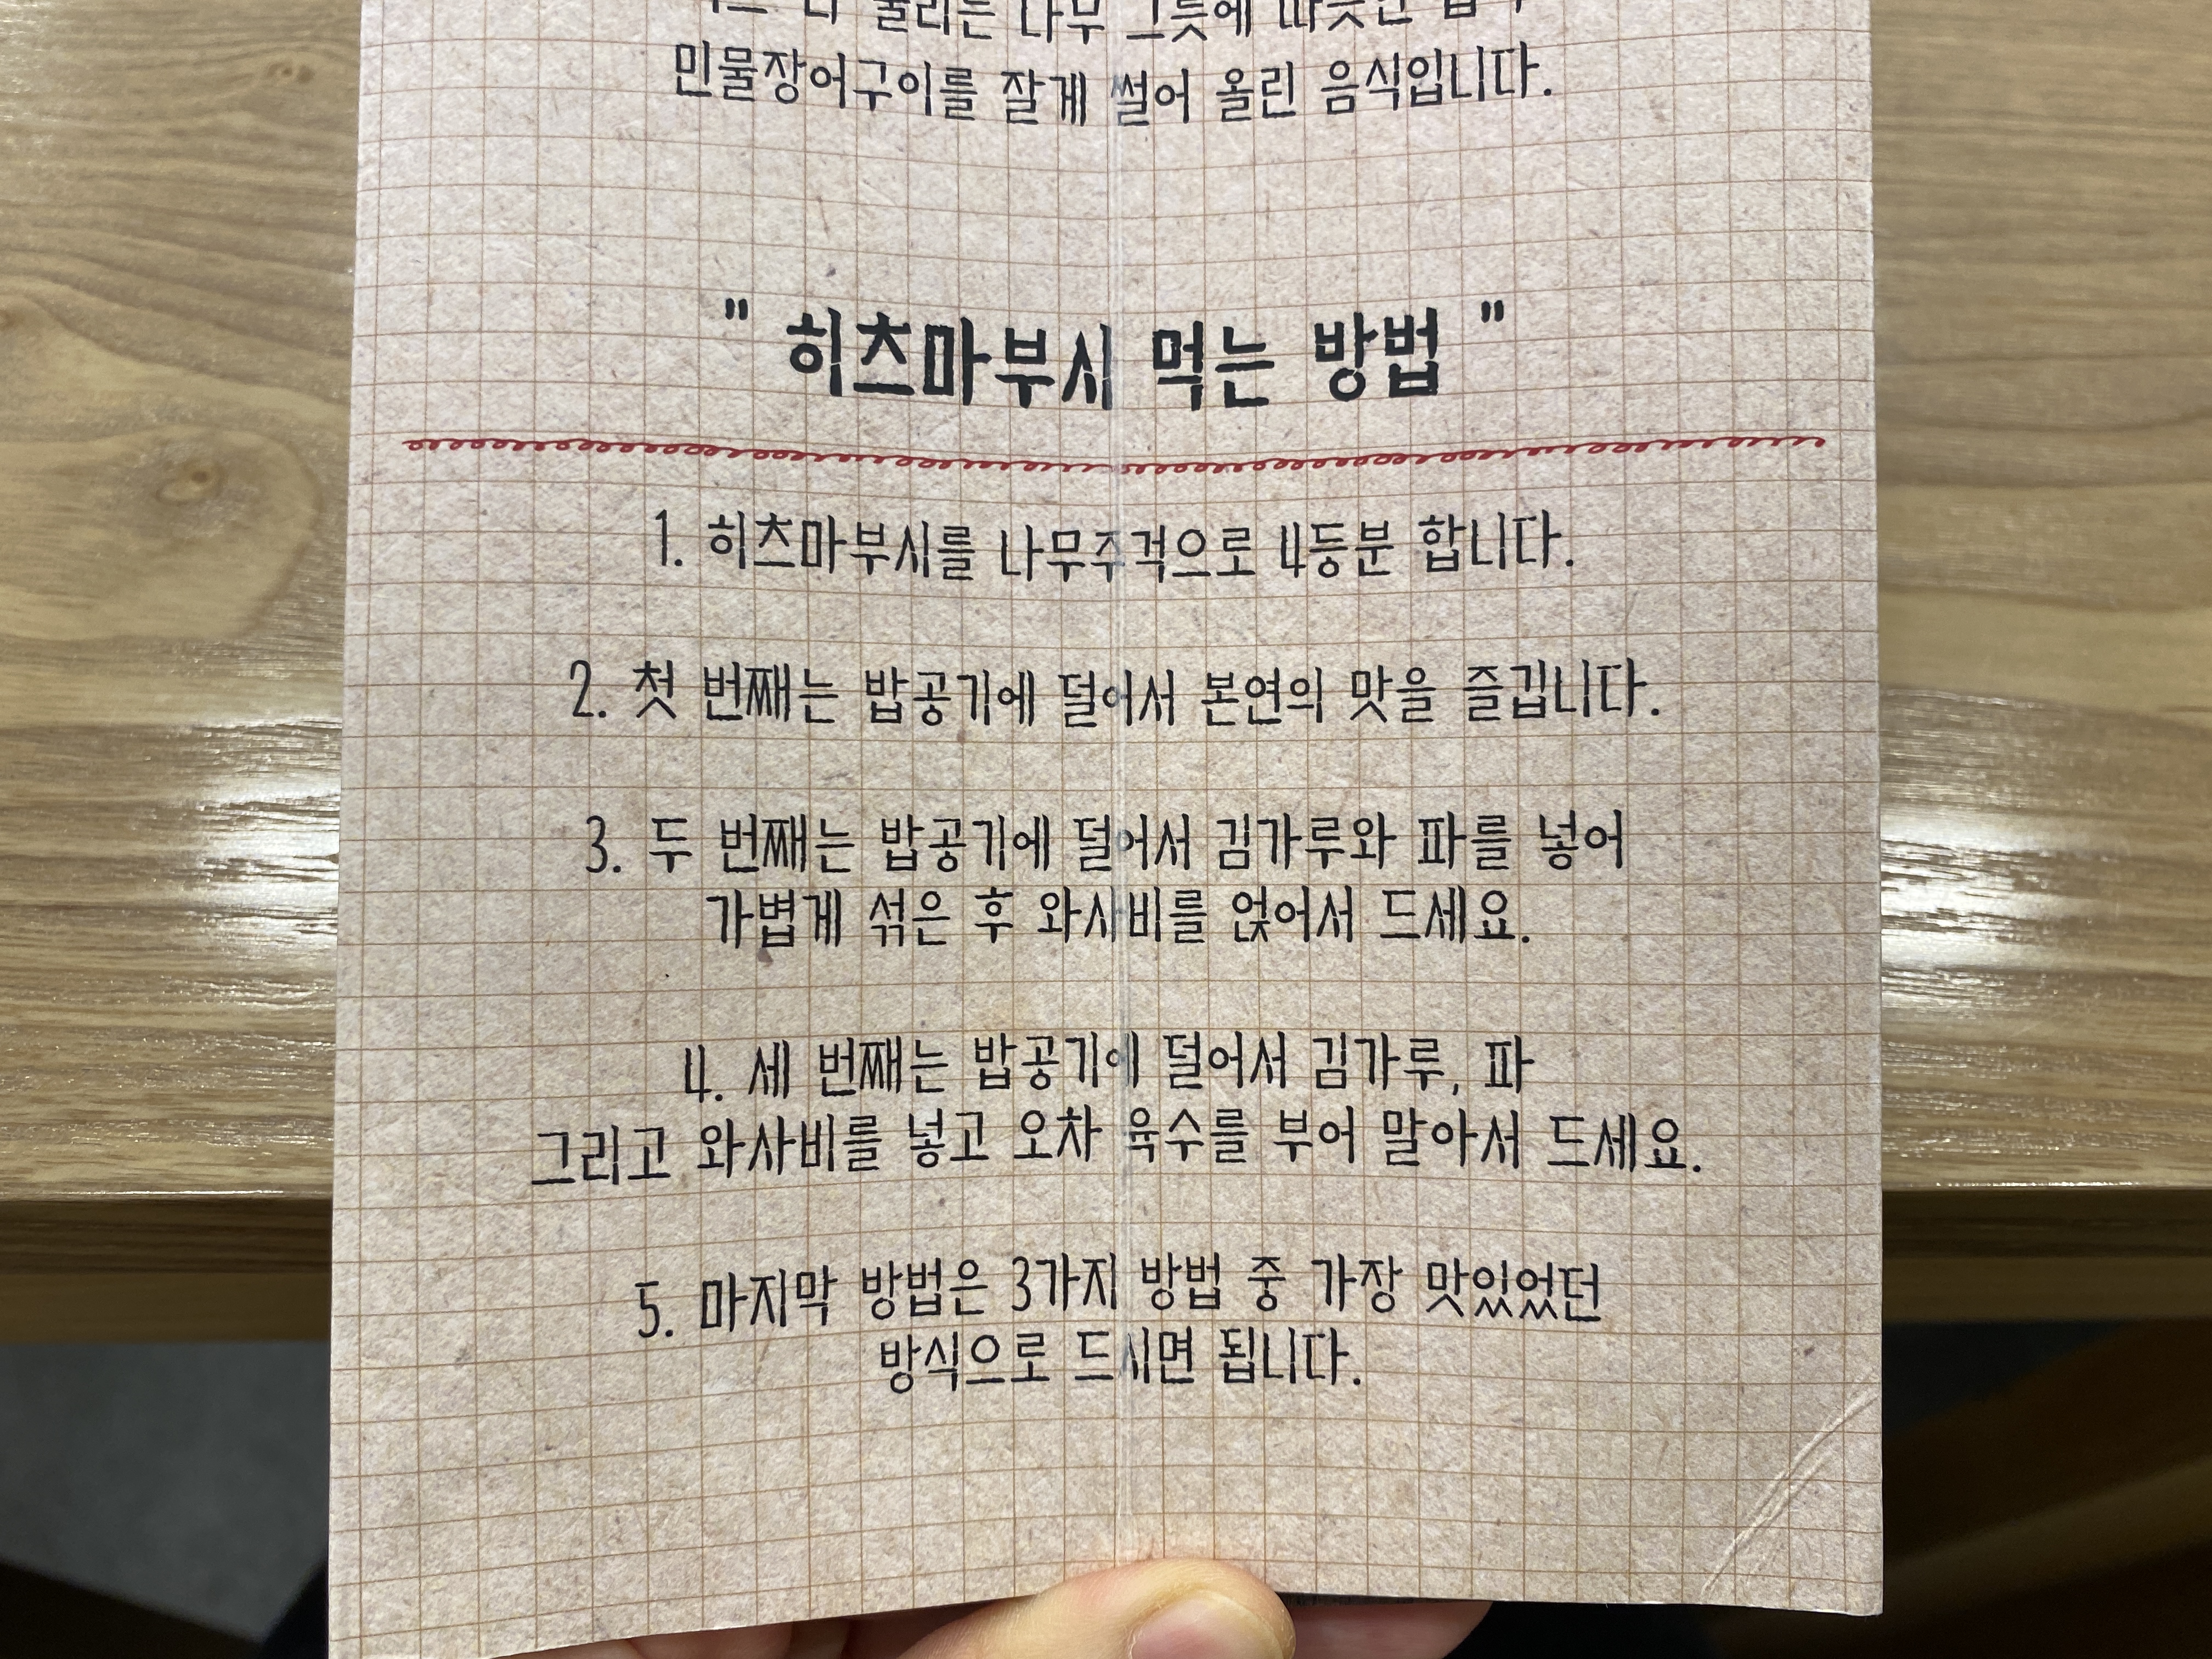 나무 그릇에 따뜻한
민물장어구이를 잘게 썰어 올린 음식입니다.
" 히츠마부시 먹는 방법 "
1. 히츠마부시를 나무주걱으로 4등분 합니다.
2. 첫 번째는 밥공기에 덜어서 본연의 맛을 즐깁니다.
3. 두 번째는 밥공기에 덜어서 김가루와 파를 넣어
가볍게 섞은 후 와사비를 얹어서 드세요.
4. 세 번째는 밥공기에 덜어서 김가루, 파
그리고 와사비를 넣고 오차 육수를 부어 말아서 드세요.
5. 마지막 방법은 3가지 방법 중 가장 맛있었던
방식으로 드시면 됩니다.